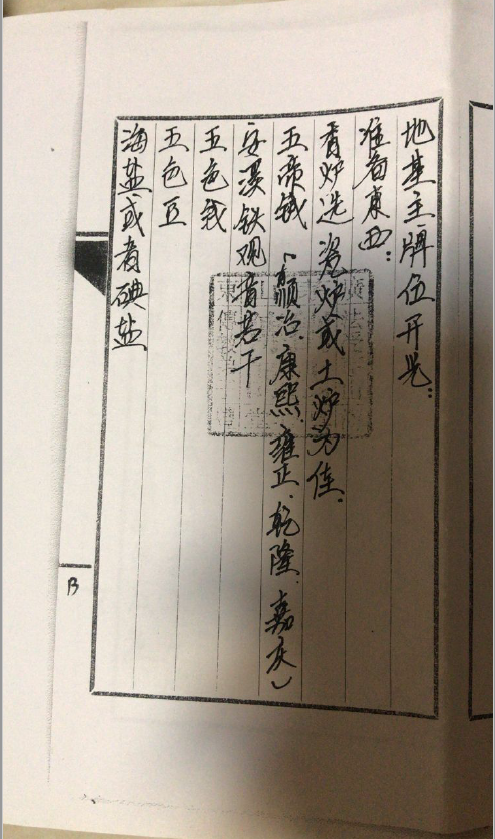 地基主牌位开光:
准备东西:
香炉选瓷炉或土炉为佳.
五帝钱(顺治、康熙、雍正、乾隆、嘉庆)
安溪铁观音若干
五色线
五色豆
海盐或者碘盐
B